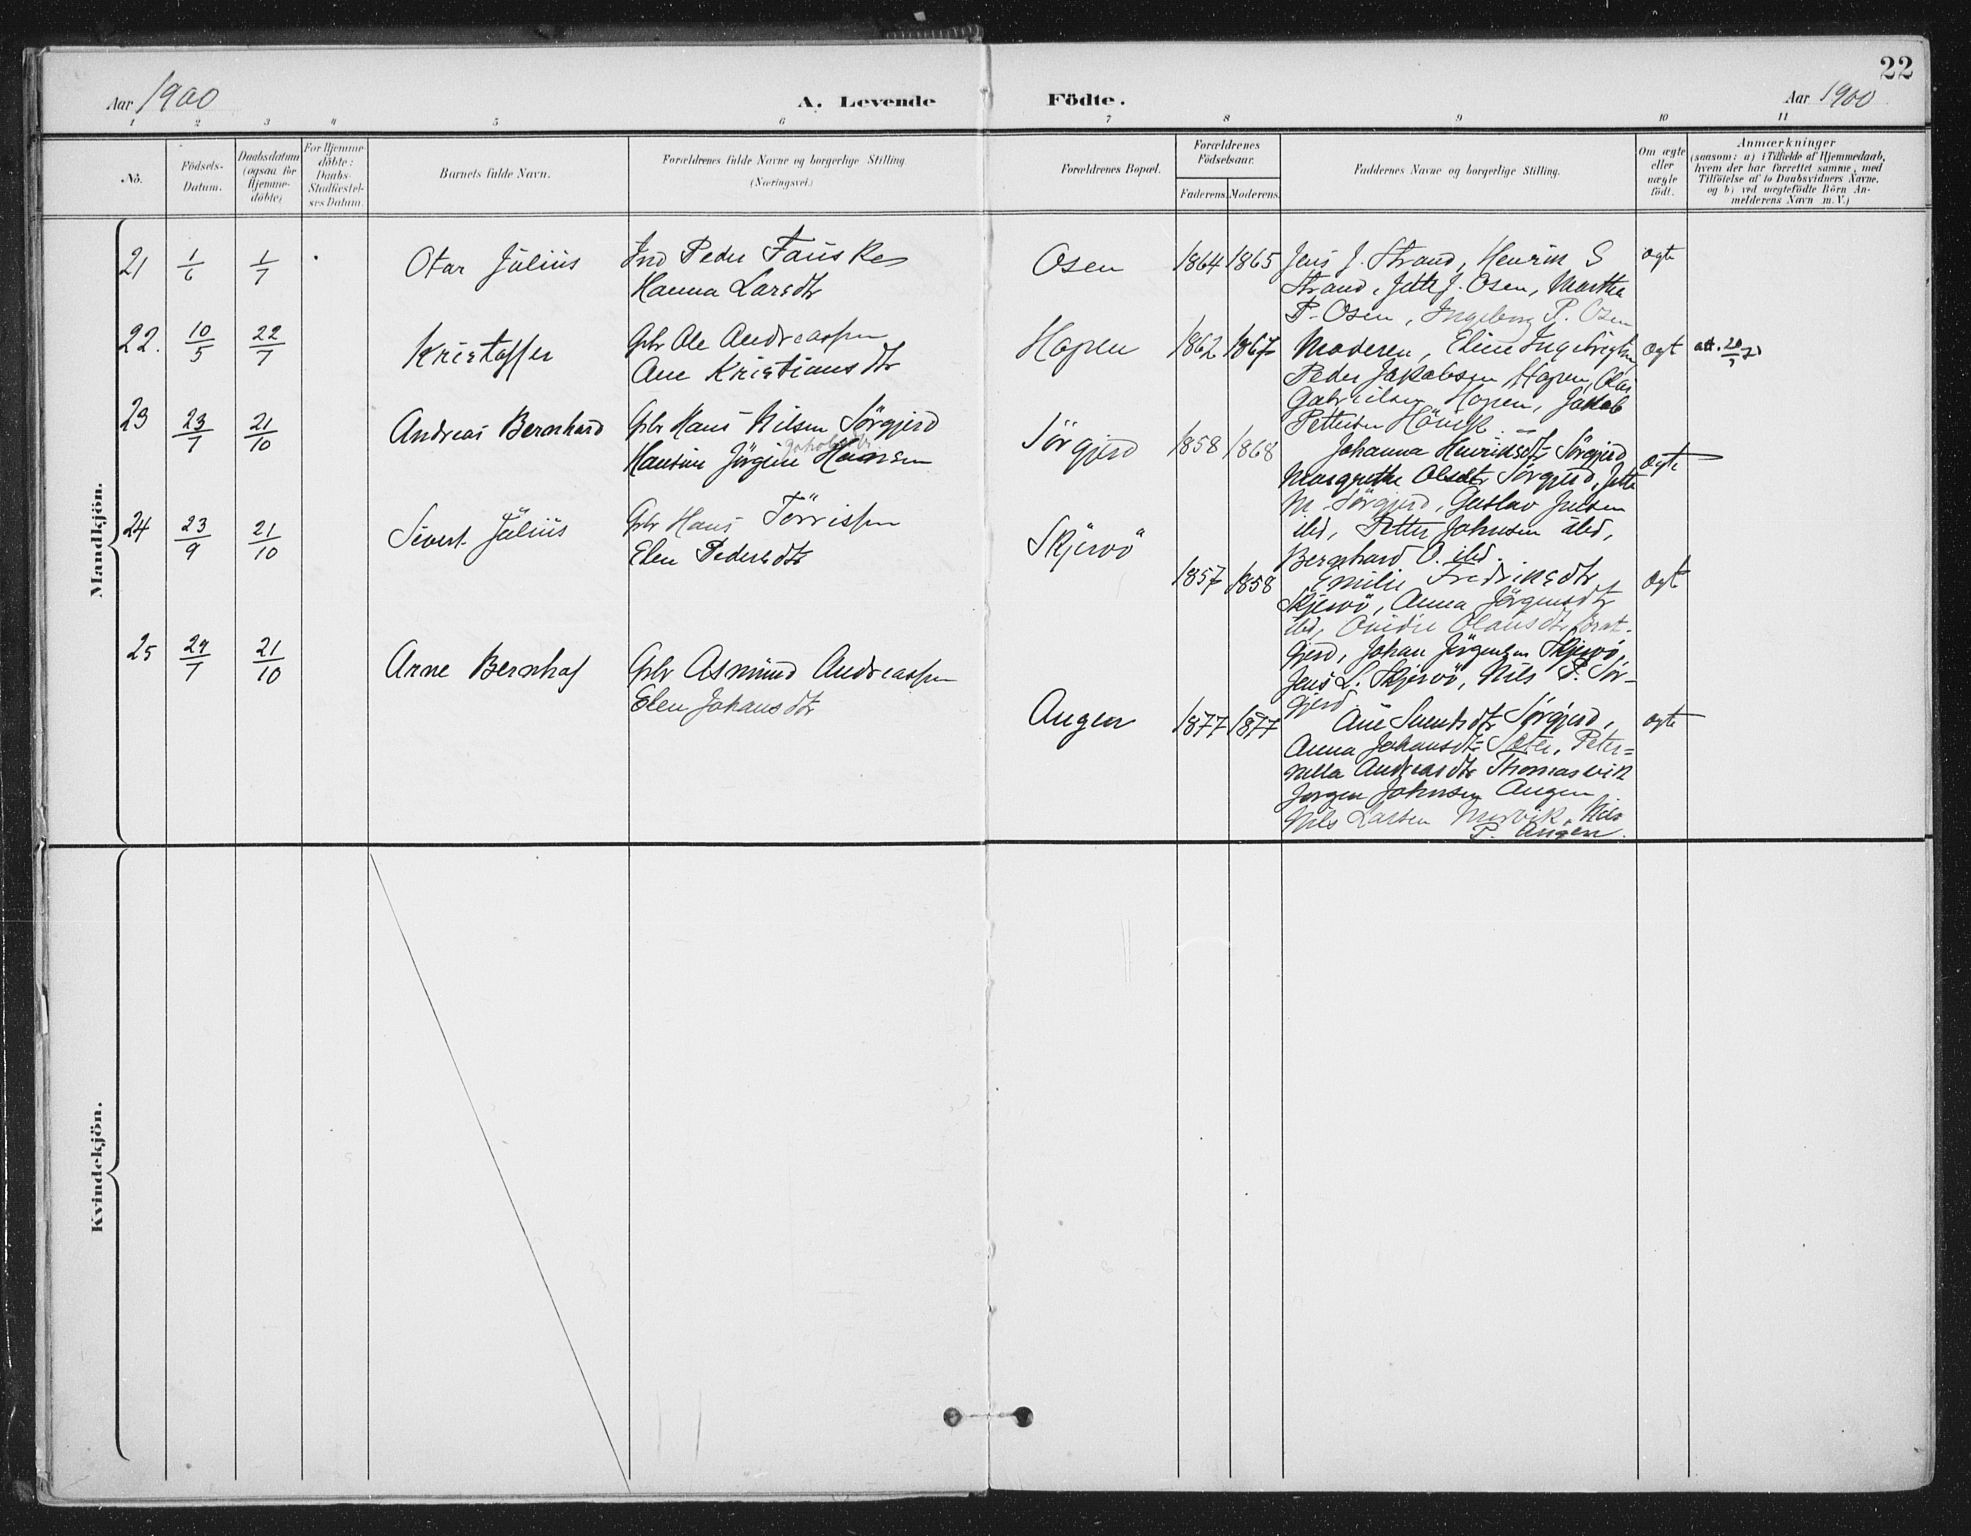 22
Aar 1900 A. Levende Födte. Aar 1900
1 2 3 4 5 6 7 8 9 10 11
No.
Födsels-
Datum.
Daabsdatum
(ogsaa for
Hjemme-
döbte)
For Hjemme-
döbte:
Daabs-
Stadfæstel-
ses Datum.
Barnets fulde Navn.
Forældrenes fulde Navne og borgerlige Stilling.
(Næringsvei.)
Forældrenes Bopæl.
Forældrenes
Födselsaar.
Faderens. Moderens.
Faddernes Navne og borgerlige Stilling.
Om ægte
eller
uægte
födt.
Anmærkninger
(saasom: a) i Tilfælde af Hjemmedaab,
hvem der har forrettet samme, med
Tilföielse af to Daabsvidners Navne,
og b) ved uægtefödte Börn An-
melderens Navn m. V.)
Mandkjön.
21 1/6 1/7 Otar Julius
Ind Peder Fauske
Hanna Larsdtr
Osen 1864 1865
Jens J. Strand, Henrik S
Strand, Jette J. Osen, Martha
P. Osen, Ingeborg P. Osen
ægte
22. 10/5 22/7 Kristoffer
Gbr Ole Andreassen
Ane Kristiansdtr
Hopen 1862 1867
Moderen, Eline
Peder Jakobsen Hopen,
Gabrielsen Hopen, Jakob
Pettersen
ægt att. 20/7
23 23/7 21/10 Andreas Bernhard
Gbr Hans Nilsen Sørgjerd
Jakobsdtr
Hansine Jörgine Hansen
Sörgjerd 1858 1868
Johanna Henriksdtr Sørgjerd
Margrethe Olsdtr Sørgjerd, Jette
M. Sørgjerd, Gustav Julsen
ibd, Petter Johnsen ibd,
Bernhard O. ibd.
ægte
24 23/9 21/10 Sivert Julius
Gbr Hans Törrissen
Elen Pedersdtr
Skjervö
1857 1858
Emilie Fredriksdtr
Skjervö, Anna Jörgensdtr
ibd, Ovidie Olausdtr
gjerd, Johan Jörgensen Skjervö,
Jens L. Skjervö, Nils P. Sör-
gjerd
ægt
25 29/7 21/10 Arne Bernhof
Gbr Asmund Andreassen
Elen Johansdtr
Angen 1877 1877
Ane Svendsdtr Sørgjerd,
Anna Johansdtr Sæter, Peter-
nella Andreasdtr Thomasvik
Jørgen Johnsen Angen
Nils Larsen Nils
P. Angen.
ægte
Kvindekjön.